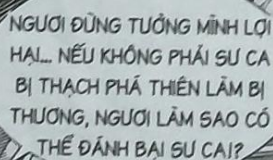 NGƯƠI ĐỪNG TƯỞNG MÌNH LỢI
HẠI... NẾU KHÔNG PHẢI SƯ CA
BỊ THẠCH PHÁ THIÊN LÀM BỊ
THƯƠNG, NGƯƠI LÀM SAO CÓ
THỂ ĐÁNH BẠI SƯ CA?